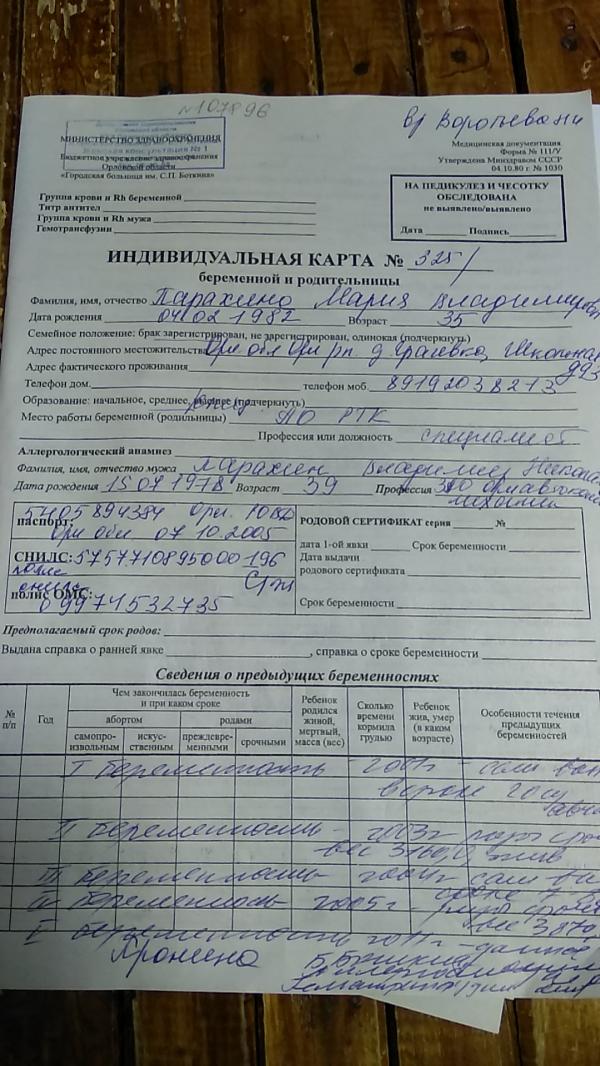 №107896
МИНИСТЕРСТВО ЗДРАВООХРАНЕНИЯ
Бюджетное учреждение здравоохранения
Орловской области
«Городская больница им. С.П. Боткина»
Медицинская документация
Форма № 111/У
Утверждена Минздравом СССР
04.10.80 г. № 1030
Группа крови и Rh беременной
Титр антител
Группа крови и Rh мужа
Гемотрансфузии
НА ПЕДИКУЛЕЗ И ЧЕСОТКУ
ОБСЛЕДОВАНА
не выявлено/выявлено
Дата Подпись
ИНДИВИДУАЛЬНАЯ КАРТА № 325/
беременной и родительницы
Фамилия, имя, отчество Парахина Мария Владимировн
Дата рождения 04 02 1982 Возраст 35
Семейное положение: брак зарегистрирован, не зарегистрирован, одинокая (подчеркнуть)
Адрес постоянного местожительства Орл обл Орл рн д.
Адрес фактического проживания
Телефон дом. телефон моб. 89192038213
Образование: начальное, среднее, (подчеркнуть)
Место работы беременной (родильницы) АО РТК
Профессия или должность специалист
Аллергологический анамнез
Фамилия, имя, отчество мужа Парахин Владимир Никола
Дата рождения 15 07 1978 Возраст 39 Профессия механик
паспорт: 5405 894384
Орл обл 07.10.2005
СНИЛС: 5757710895000196
полис
полис ОМС:
09974532735
РОДОВОЙ СЕРТИФИКАТ серия №
дата 1-ой явки Срок беременности
Дата выдачи
родового сертификата
Срок беременности
Предполагаемый срок родов:
Выдана справка о ранней явке , справка о сроке беременности
Сведения о предыдущих беременностях
№ п/п Год Чем закончилась беременность и при каком сроке Ребенок родился живой, мертвый, масса (вес) Сколько времени кормила грудью Ребенок жив, умер (в каком возрасте) Особенности течения предыдущих беременностей
абортом родами
самопроизвольным искусственным преждевременными срочными
I беременность - 2001г - сам вы
II беременность - 2003г роды сро
вес 3160,0 жив
III беременность 2004г сам вы
сроке
IV беременность 2005г - роды сроч
вес 3870
V беременность 2011г - данное